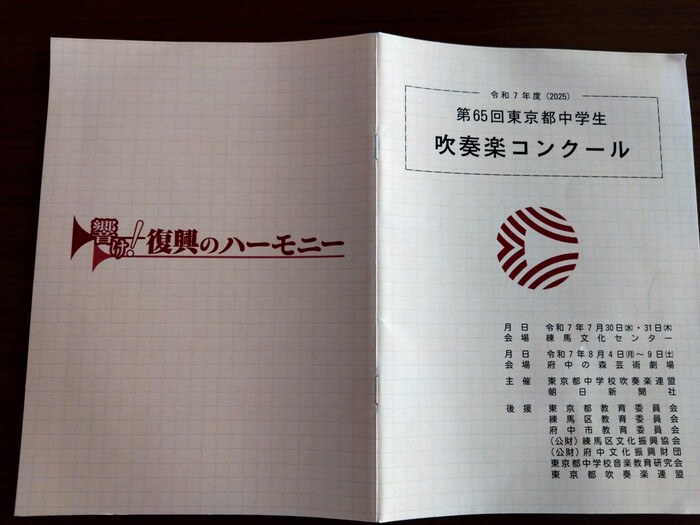 響け!復興のハーモニー
令和7年度(2025)
第65回東京都中学生
吹奏楽コンクール
月日 令和7年7月30日㈬・31日㈭
会場 練馬文化センター
月日 令和7年8月4日㈪〜9日㈯
会場 府中の森芸術劇場
主催 東京都中学校吹奏楽連盟
朝日新聞社
後援 東京都教育委員会
練馬区教育委員会
府中市教育委員会
(公財)練馬区文化振興協会
(公財)府中文化振興財団
東京都中学校音楽教育研究会
東京都吹奏楽連盟